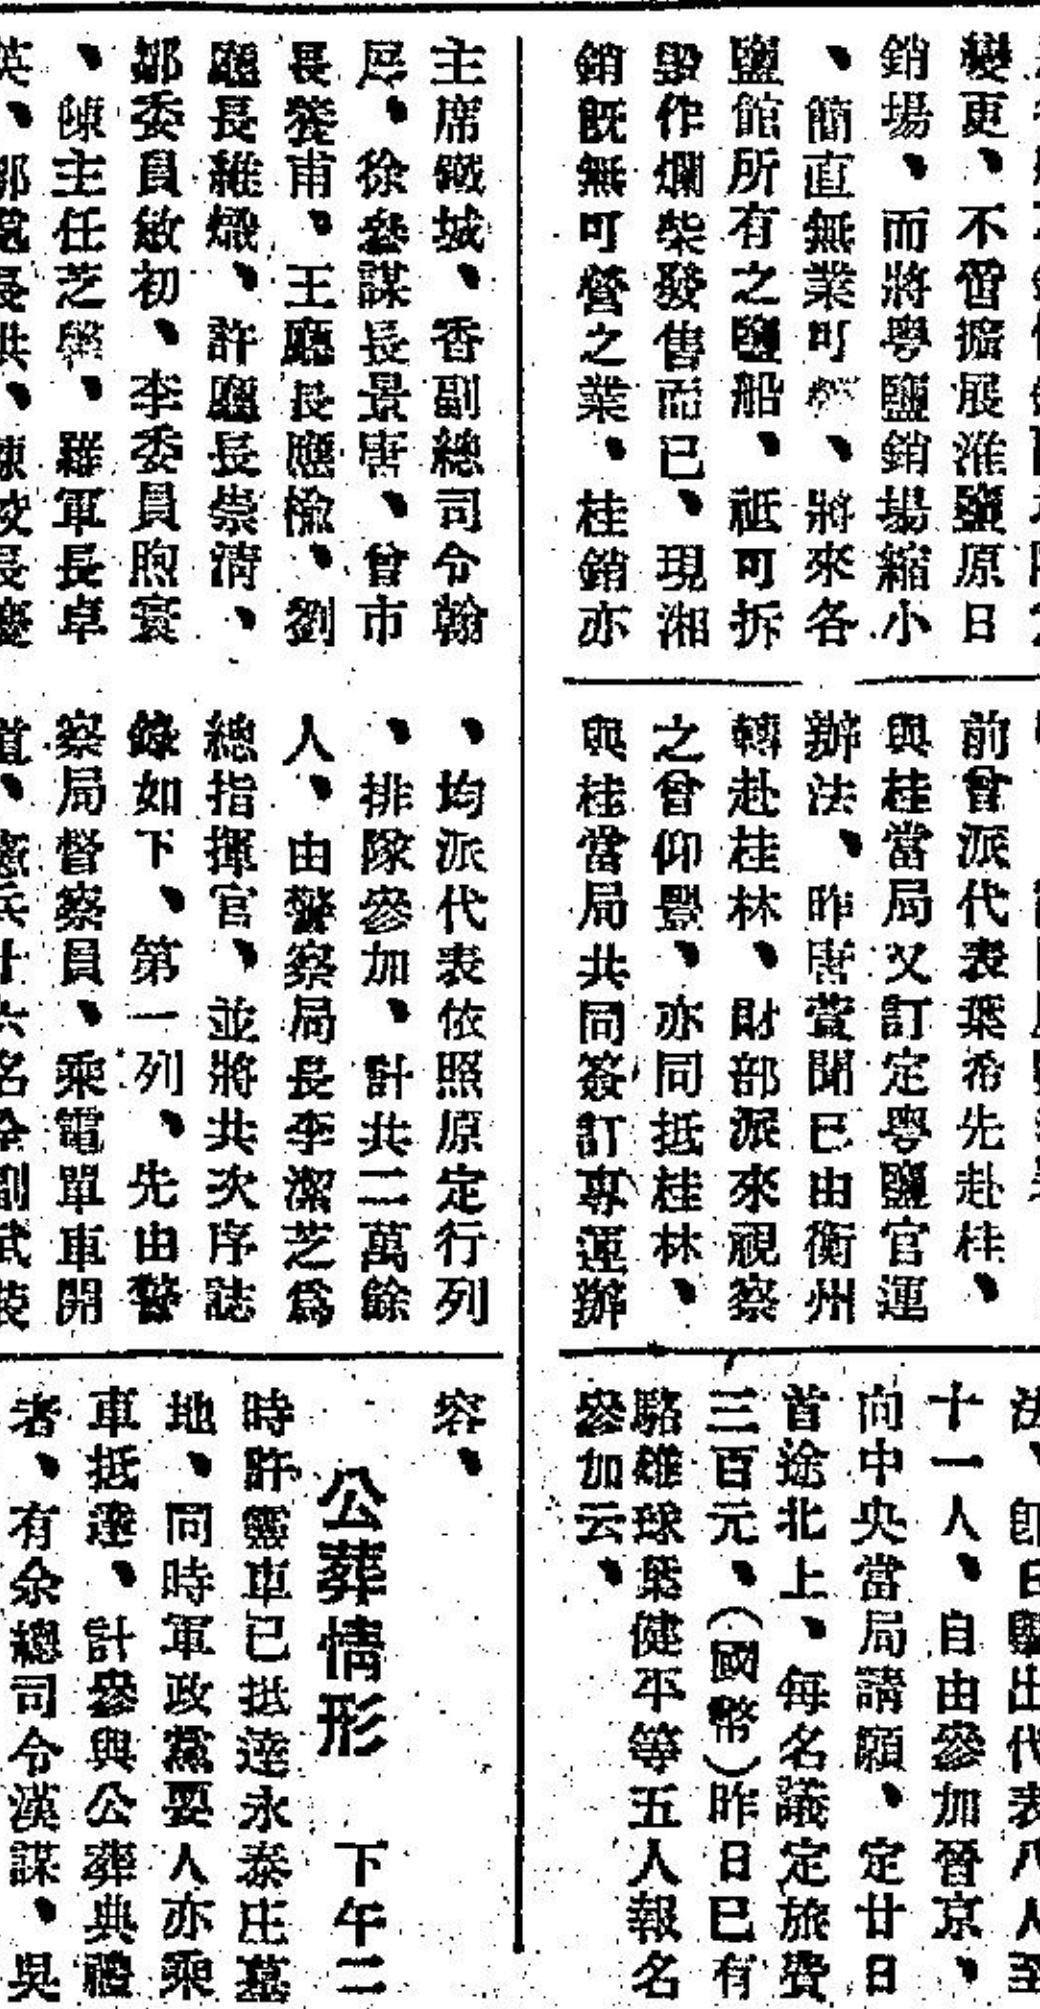 變更、不啻擴展淮鹽原日
銷場、而將粵鹽銷場縮小
、簡直無業可營、將來各
鹽館所有之鹽船、祇可拆
毀作爛柴發售而已、現湘
銷既無可營之業、桂銷亦
前曾派代表葉希先赴桂、
與桂當局又訂定粵鹽官運
辦法、昨唐萱聞已由衡州
轉赴桂林、財部派來視察
之曾仰豐、亦同抵桂林、
與桂當局共同簽訂專運辦
法、即日舉出代表八人至
十一人、自由參加晉京、
向中央當局請願、定廿日
首途北上、每名議定旅費
三百元、(國幣)昨日已有
駱雄球葉健平等五人報名
參加云、
主席鐵城、香副總司令翰
屏、徐參謀長景唐、曾市
長養甫、王廳長應榆、劉
廳長維熾、許廳長崇清、
鄒委員敏初、李委員煦寰
、陳主任芝馨、羅軍長卓
、均派代表依照原定行列
、排隊參加、計共二萬餘
人、由警察局長李潔芝為
總指揮官、並將共次序誌
錄如下、第一列、先由警
察局督察員、乘電單車開
道、憲兵廿六名全副武裝
容、
公葬情形 下午二
時許靈車已抵達永泰庄墓
地、同時軍政黨要人亦乘
車抵達、計參與公葬典禮
者、有余總司令漢謀、吳